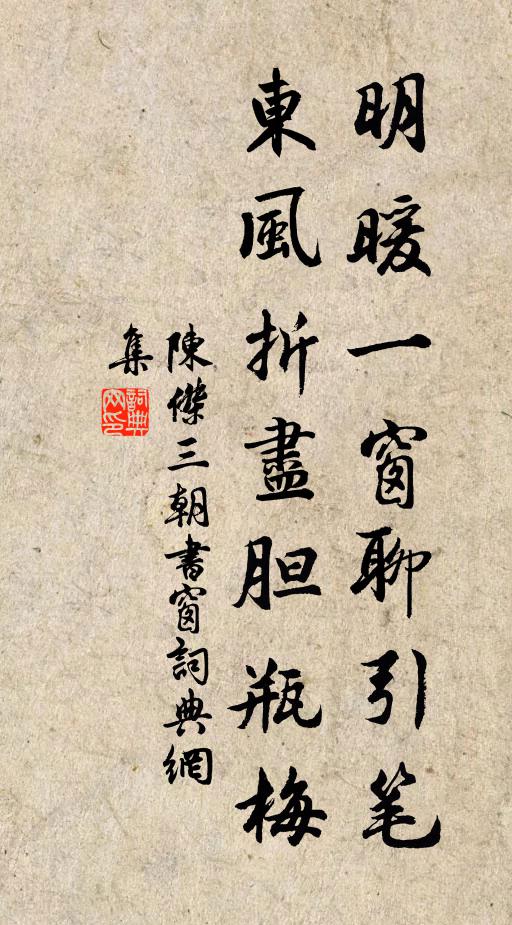 明暖一窗聊引笔
東風折盡胆瓶梅
陳傑三朝書窗詞典網
集
詞典网印